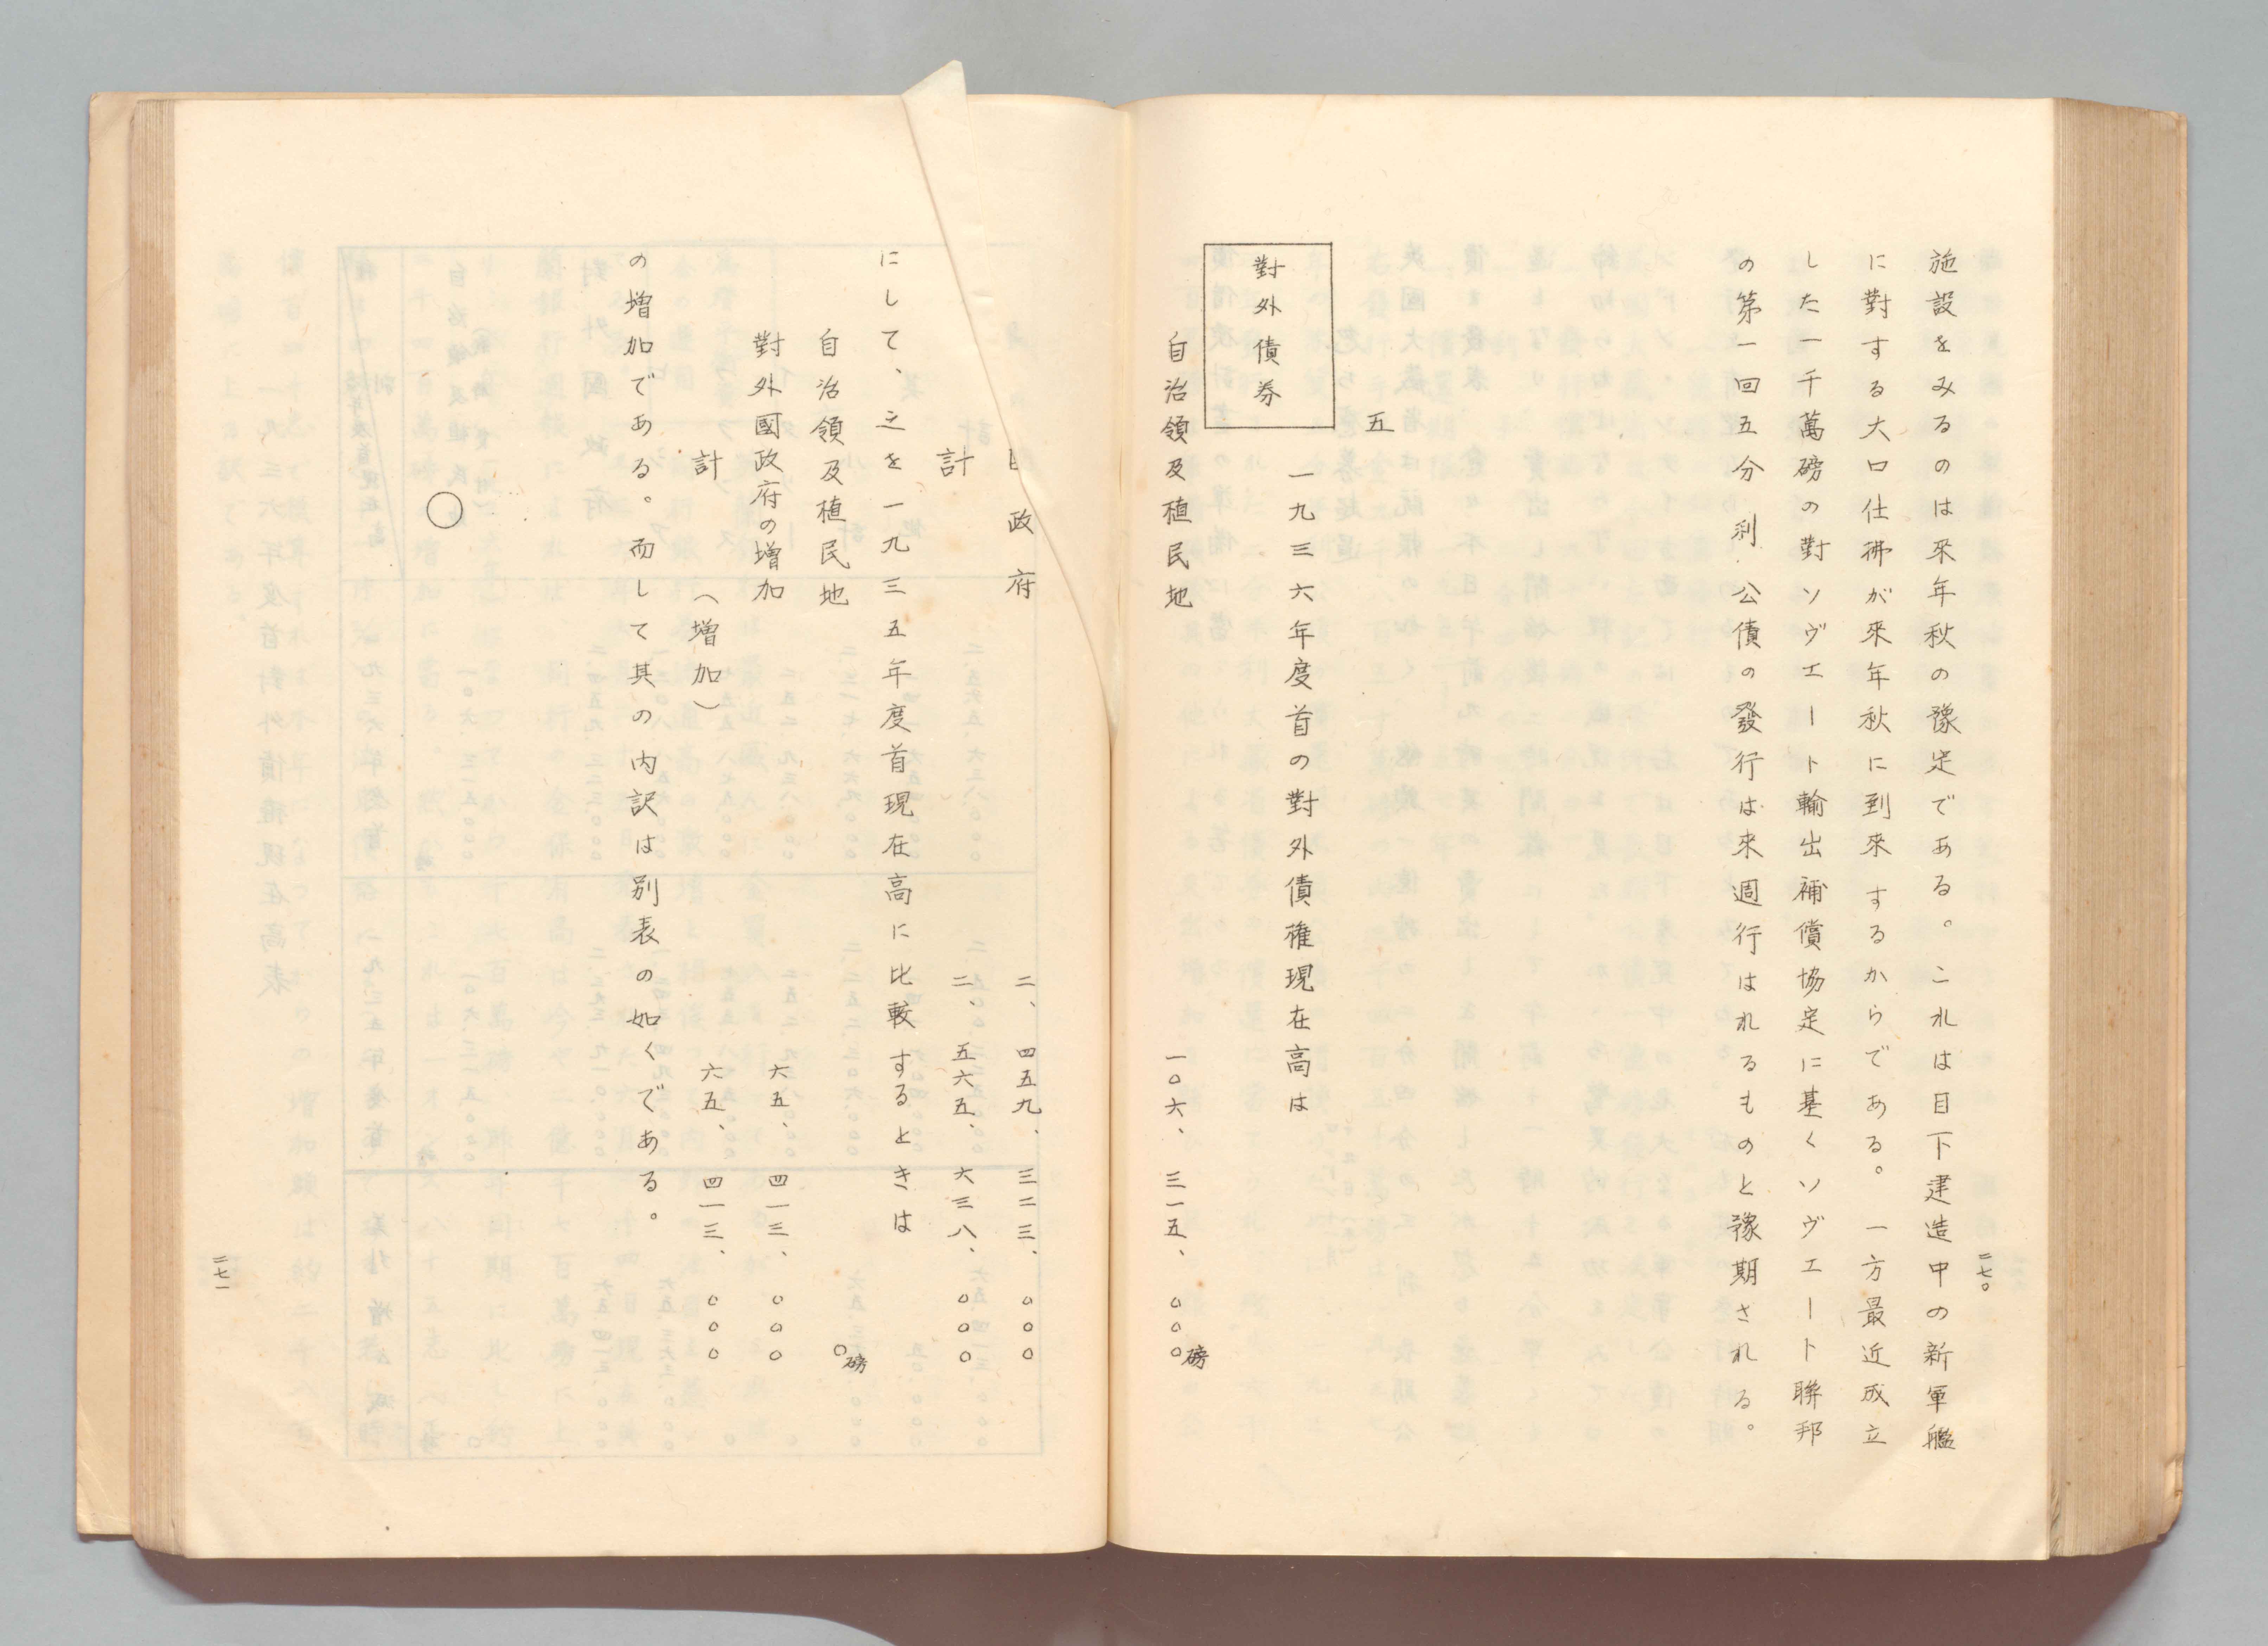 二七〇
施設をみるのは來年秋の豫定である。これは目下建造中の新軍艦
に對する大口仕拂が來年秋に到來するからである。一方最近成立
した一千萬磅の對ソヴエート輸出補償協定に基くソヴエート聯邦
の第一回五分利公債の發行は來週行はれるものと豫期される。
五
對外債券
一九三六年度首の對外債權現在高は
自治領及植民地 一〇六、三一五、〇〇〇磅
政府 二、四五九、三二三、〇〇〇
計 二、五六五、六三八、〇〇〇
にして、之を一九三五年度首現在高に比較するときは
自治領及植民地 〇磅
對外國政府の増加 六五、四一三、〇〇〇
計(増加) 六五、四一三、〇〇〇
の増加である。而して其の内訳は別表の如くである。
○
二七一